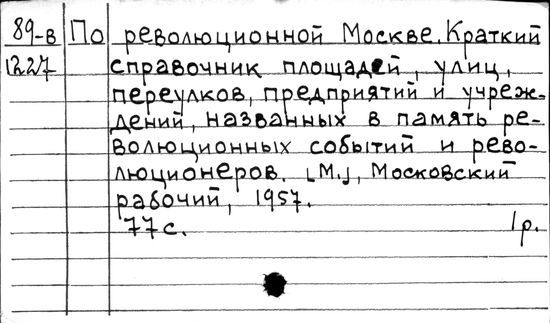 89-в По революционной Москве. Краткий
1227 справочник площадей, улиц,
переулков, предприятий и учреж-
дений, названных в память ре-
волюционных событий и рево-
люционеров. [М.], Московский
рабочий, 1957.
77 с. 1р.